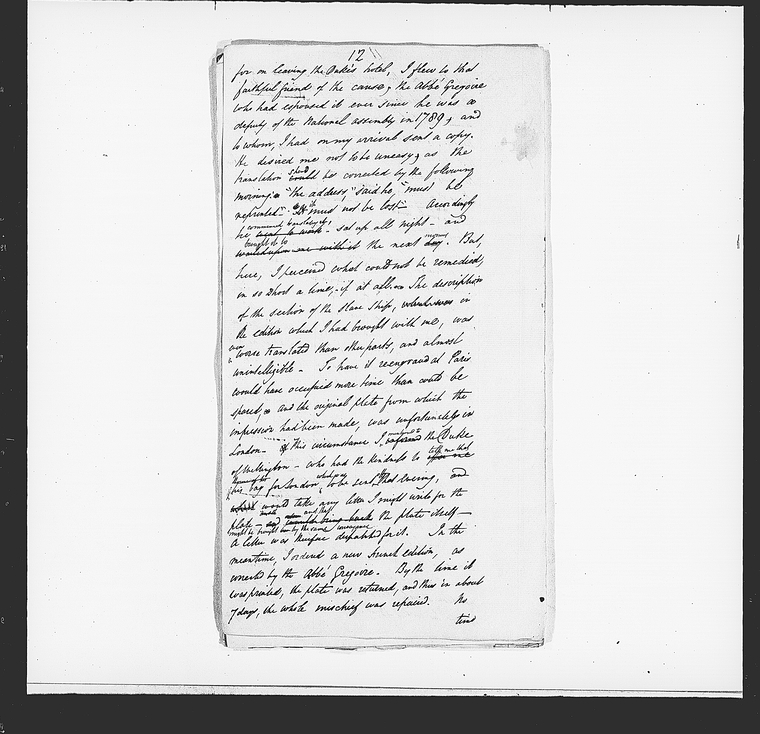 12
for on leaving the Duke's hotel, I flew to that
faithful friend of the cause, the Abbé Gregoire
who had espoused it ever since he was a
deputy of the National assembly in 1789, and
to whom, I had on my arrival sent a copy.
He desired me not to be uneasy, as the
translation should be corrected by the following
morning. "The address," said he, "must be
reprinted". "It must not be lost". Accordingly
he went to work - sat up all night - and
brought it to
would upon me with it the next morning day. But,
here, I perceived what could not be remedied,
in so short a time, if at all. The description
of the section of the Slave Ship, in
the edition which I had brought with me, was
even
worse translated than other parts, and almost
unintelligible - To have it reengraved at Paris
would have occupied more time than could be
spared, and the original plate from which the
impression had been made, was unfortunately in
London - Of this circumstance I informed the Duke
of Wellington - who had the kindness to tell me that
his bag for London, to be sent that Evening, and
would take any letter I might write for the
plate - and bring back the plate itself -
might be brought by the same conveyance
A letter was therefore dispatched for it. In the
meantime, I ordered a new French edition, as
corrected by the Abbé Gregoire. By the time it
was printed, the plate was returned, and thus in about
7 days, the whole mischief was repaired. No
time